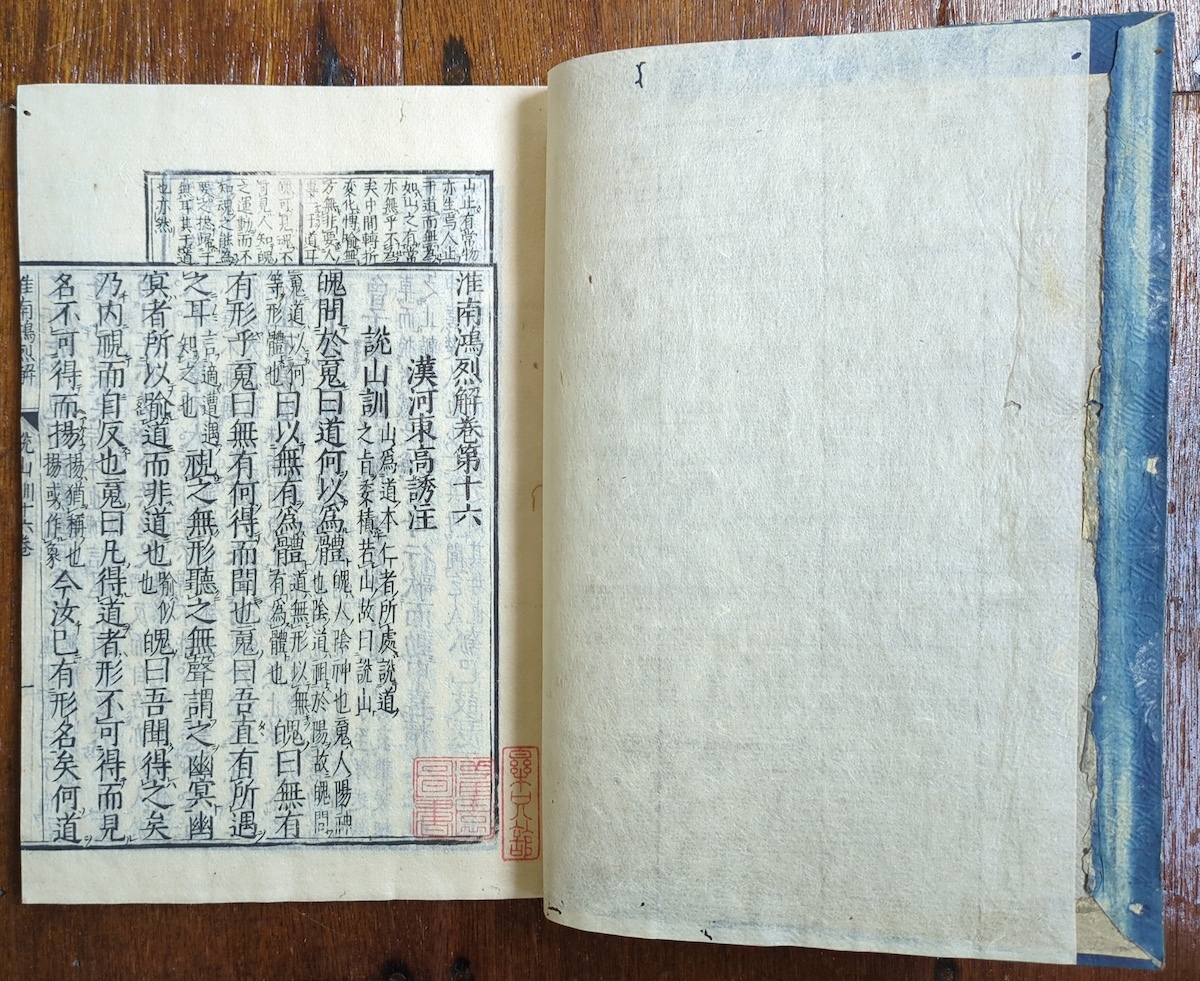 山止有常物
亦生焉人止
于道而無為
如山之有常
亦無乎不為
矣中間轉折
變化博喻無
方無非要人
專主于道耳
魄可見魂不
可見人知魄
之運動而不
知魂之能為
無耳其于道
也亦然
淮南鴻烈解卷第十六
漢河東高誘注
說山訓山為道本仁者所處說道之旨委積若山故曰說山
魄問於䰟曰道何以為體魄人陰神也䰟人陽神也陰道祖於陽故魄問
䰟道以何等形體也曰以無有為體道無形以無有為體也魄曰無有
有形乎䰟曰無有何得而聞也䰟曰吾直有所遇
之耳言適遭遇知之也視之無形聽之無聲謂之幽冥幽
冥者所以喻道而非道也喻似也魄曰吾聞得之矣
乃内視而自反也䰟曰凡得道者形不可得而見
名不可得而揚揚猶稱也揚或作象今汝已有形名矣何道
淮南鴻烈解
說山訓十六卷
一
圖書